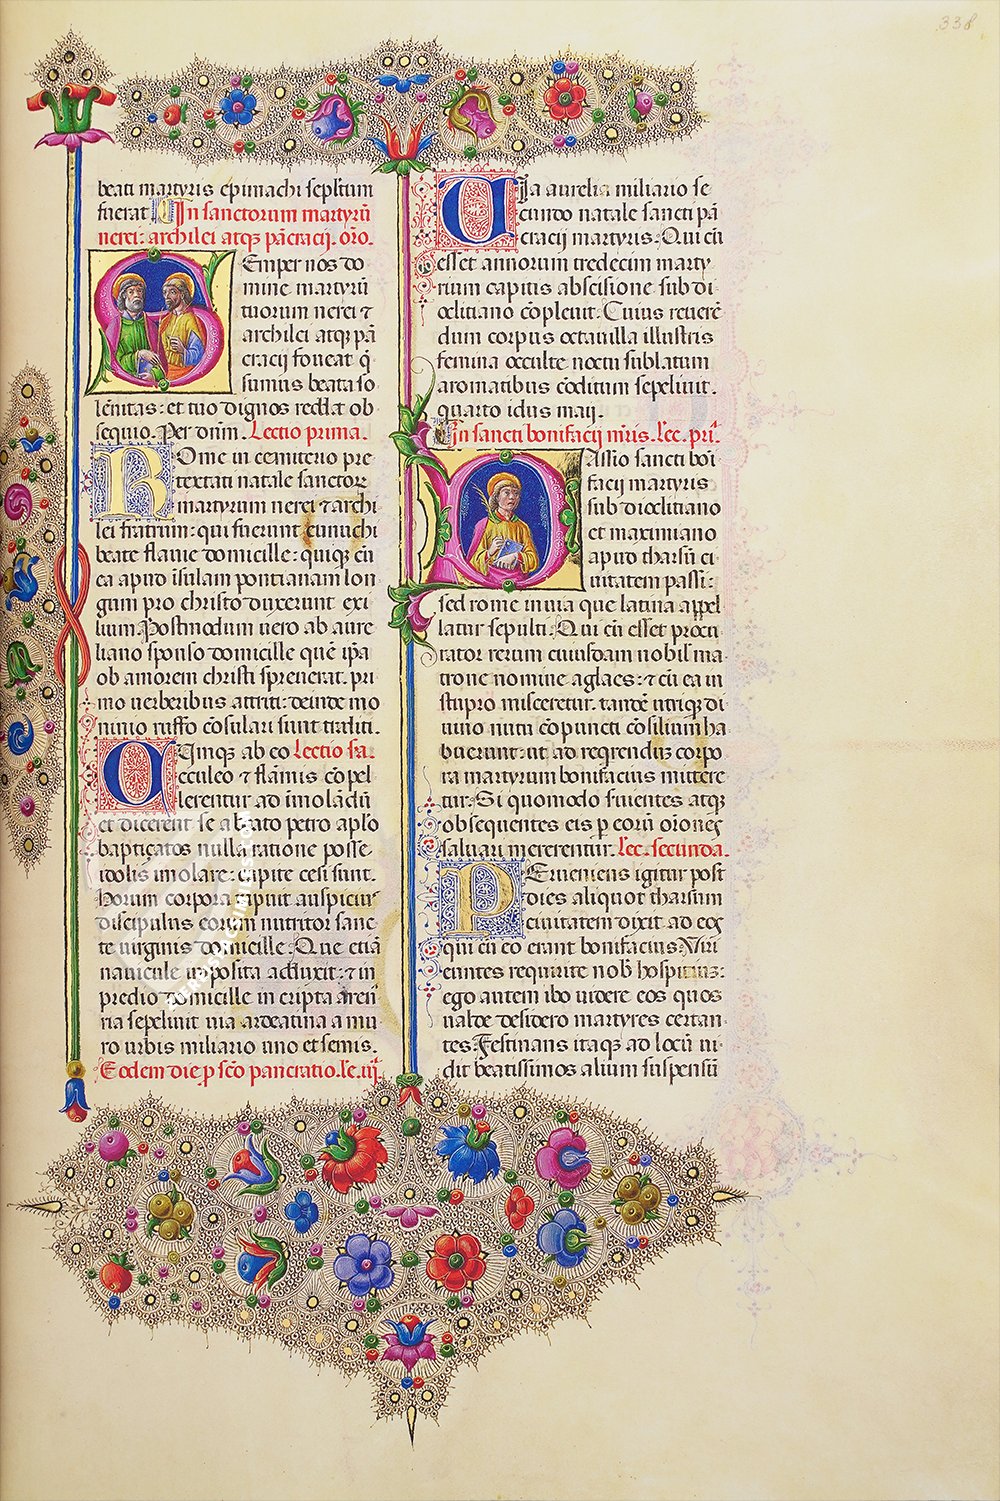 338
beati martyris epimachi sepl̄tum
fuerat In sanctorum martyrū
nerei: archilei atqꝫ pācracij. or̄o.
SEmper nos do
mine martyrū
tuorum nerei ⁊
archilei atqꝫ pā
cracij foueat q̄
sumus beata so
lēnitas: et tuo dignos reddat ob
sequio. Per dn̄m. Lectio prima.
ROme in cemiterio pre
textati natale sanctoꝝ
martyrum nerei ⁊ archi
lei fratrum: qui fuerunt eunuchi
beate flauie domicille: quiqꝫ cū
ea apud īsulam pontianam lon
gum pro christo duxerunt exi
lium. Postmodum uero ab aure
liano sponso domicille que īp̄a
ob amorem christi spreuerat. pri
mo uerberibus attriti: deinde mo
minio ruffo cōsulari sunt traditi.
CUmqꝫ ab eo Lectio s̄a.
eculeo ⁊ flāmis cōpel
lerentur ad īmolādū
et dicerent se a beato petro ap̄lo
baptiçatos nulla ratione posse
idolis imolare: capite cesi sunt.
Horum corpora rapuit auspicius
discipulus eorum nutritor sanc
te uirginis domicille. Que etiā
nauicule īpposita adfluxit: ⁊ in
predio domicille in cripta aren̄
ria sepeliuit uia ardeatina a mu
ro urbis miliario uno et semis.
Eodem die p̄ sc̄o pancratio. le. iij.
UIa aurelia miliario se
cundo natale sancti pā
cracij martyris. Qui cū
esset annorum tredecim marty
rium capitis abscisione sub di
oclitiano cōpleuit. Cuius reuerē
dum corpus octauilla illustris
femina occulte noctu sublatum
aromatibus cōditum sepeliuit.
quarto idus maij.
In sancti bonifacij mr̄is. lec. pri.
PAssio sancti boi
facij martyris
sub dioclitiano
et maximiano
apud tharsū ci
uitatem passi:
sed rome in uia que latina appel
latur sepulti. Qui cū esset procu
rator rerum cuiusdam nobil̄ ma
trone nomine aglaes: ⁊ cū ea in
stupro misceretur. tandē utriqꝫ di
uino nutu cōpuncti cōsilium ha
buerunt: ut ad reqrendus corpo
ra martyrum bonifacius mittere
tur. Si quomodo seruientes atqꝫ
obsequentes eis p̄ eorū or̄oneꝫ
saluari mererentur. Lec. secunda.
PErueniens igitur post
dies aliquot tharsum
ciuitatem dixit ad eoꝫ
qui cū eo erant bonifacius. Viri
euntes requirite nob̄ hospitiuꝫ:
ego autem ibo uidere eos quos
ualde desidero martyres certan
tes. Festinans itaqꝫ ad locū ui
dit beatissimos alium suspensū